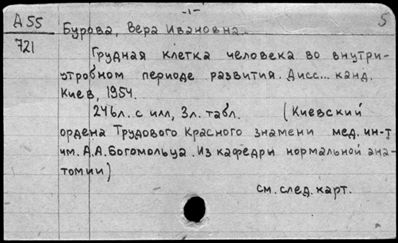 -1-
5
А 55
721
Бурова, Вера Ивановна.
Грудная клетка человека во внутри-
утробном периоде развития. Дисс... канд.
Киев, 1954.
246л. с илл, 3л. табл. (Киевский
ордена Трудового Красного знамени мед. ин-т
им. А.А. Богомольца. Из кафедри нормальной ана-
томии)
см. след. карт.